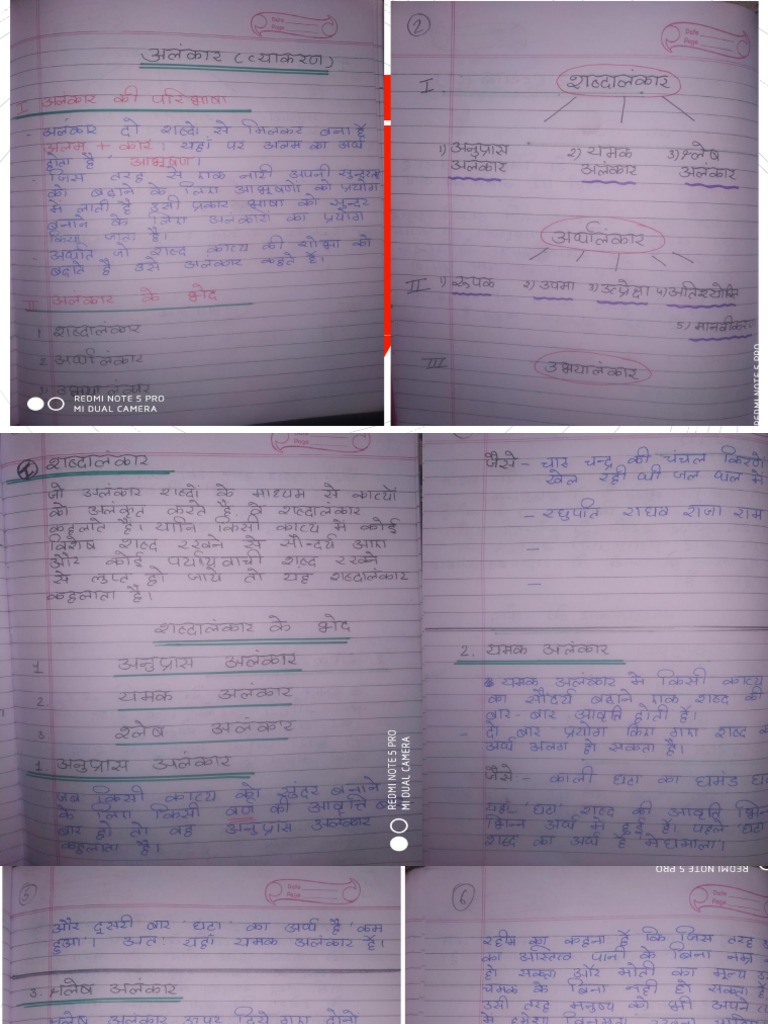 Date
Page
अलंकार (व्याकरण)
I अलंकार की परिभाषा
- अलंकार दो शब्दो से मिलकर बना है
अलम + कार। यहां पर अलम का अर्थ
होता है 'आभूषण'।
- जिस तरह से एक नारी अपनी सुन्दरता
को बढाने के लिए आभूषणो को प्रयोग
मे लाती है उसी प्रकार भाषा को सुन्दर
बनाने के लिए अलंकारो का प्रयोग
किया जाता है।
- अर्थात जो शब्द काव्य की शोभा को
बढाते है उसे अलंकार कहते है।
II अलंकार के भेद
1 शब्दालंकार
2 अर्थालंकार
3 उभयालंकार
REDMI NOTE 5 PRO
MI DUAL CAMERA
2
Date
Page
I शब्दालंकार
1) अनुप्रास 2) यमक 3) श्लेष
अलंकार अलंकार अलंकार
अर्थालंकार
II 1) रूपक 2) उपमा 3) उत्प्रेक्षा 4) अतिश्योक्ति
5) मानवीकरण
III उभयालंकार
REDMI NOTE 5 PRO
शब्दालंकार
जो अलंकार शब्दो के माध्यम से काव्यो
को अलंकृत करते है, वे शब्दालंकार
कहलाते है। यानि किसी काव्य मे कोई
विशेष शब्द रखने से सौन्दर्य आए
और कोई पर्यायवाची शब्द रखने
से लुप्त हो जाये तो यह शब्दालंकार
कहलाता है।
शब्दालंकार के भेद
1 अनुप्रास अलंकार
2 यमक अलंकार
3 श्लेष अलंकार
1 अनुप्रास अलंकार
जब किसी काव्य को सुंदर बनाने
के लिए किसी वर्ण की आवृत्ति
बार हो तो वह अनुप्रास अलंकार
कहलाता है।
REDMI NOTE 5 PRO
MI DUAL CAMERA
जैसे- चारु चन्द्र की चंचल किरणे
खेल रही थी जल थल मे
- रघुपति राघव राजा राम
-
-
2. यमक अलंकार
यमक अलंकार मे किसी काव्य
का सौंदर्य बढाने एक शब्द की
बार-बार आवृति होती है।
- दो बार प्रयोग किए गए शब्द
अर्थ अलग हो सकता है।
जैसे :- काली घटा का घमंड
यहाँ 'घटा' शब्द की आवृति भिन्न
भिन्न अर्थ मे हुई है। पहले 'घटा'
शब्द का अर्थ है मेघमाला।
REDMI NOTE 5 PRO
5
Date
Page
और दूसरी बार 'घटा' का अर्थ है 'कम
हुआ'। अतः यहाँ यमक अलंकार है।
3. श्लेष अलंकार
श्लेष अलंकार ऊपर दिये गए दोनो
6
Date
Page
रहीम का कहना है कि जिस तरह
का अस्तित्व पानी के बिना नम्र
हो सकता और मोती का मूल्य
चमक के बिना नही हो सकता है
उसी तरह मनुष्य को भी अपने
मे हमेशा विनम्रता